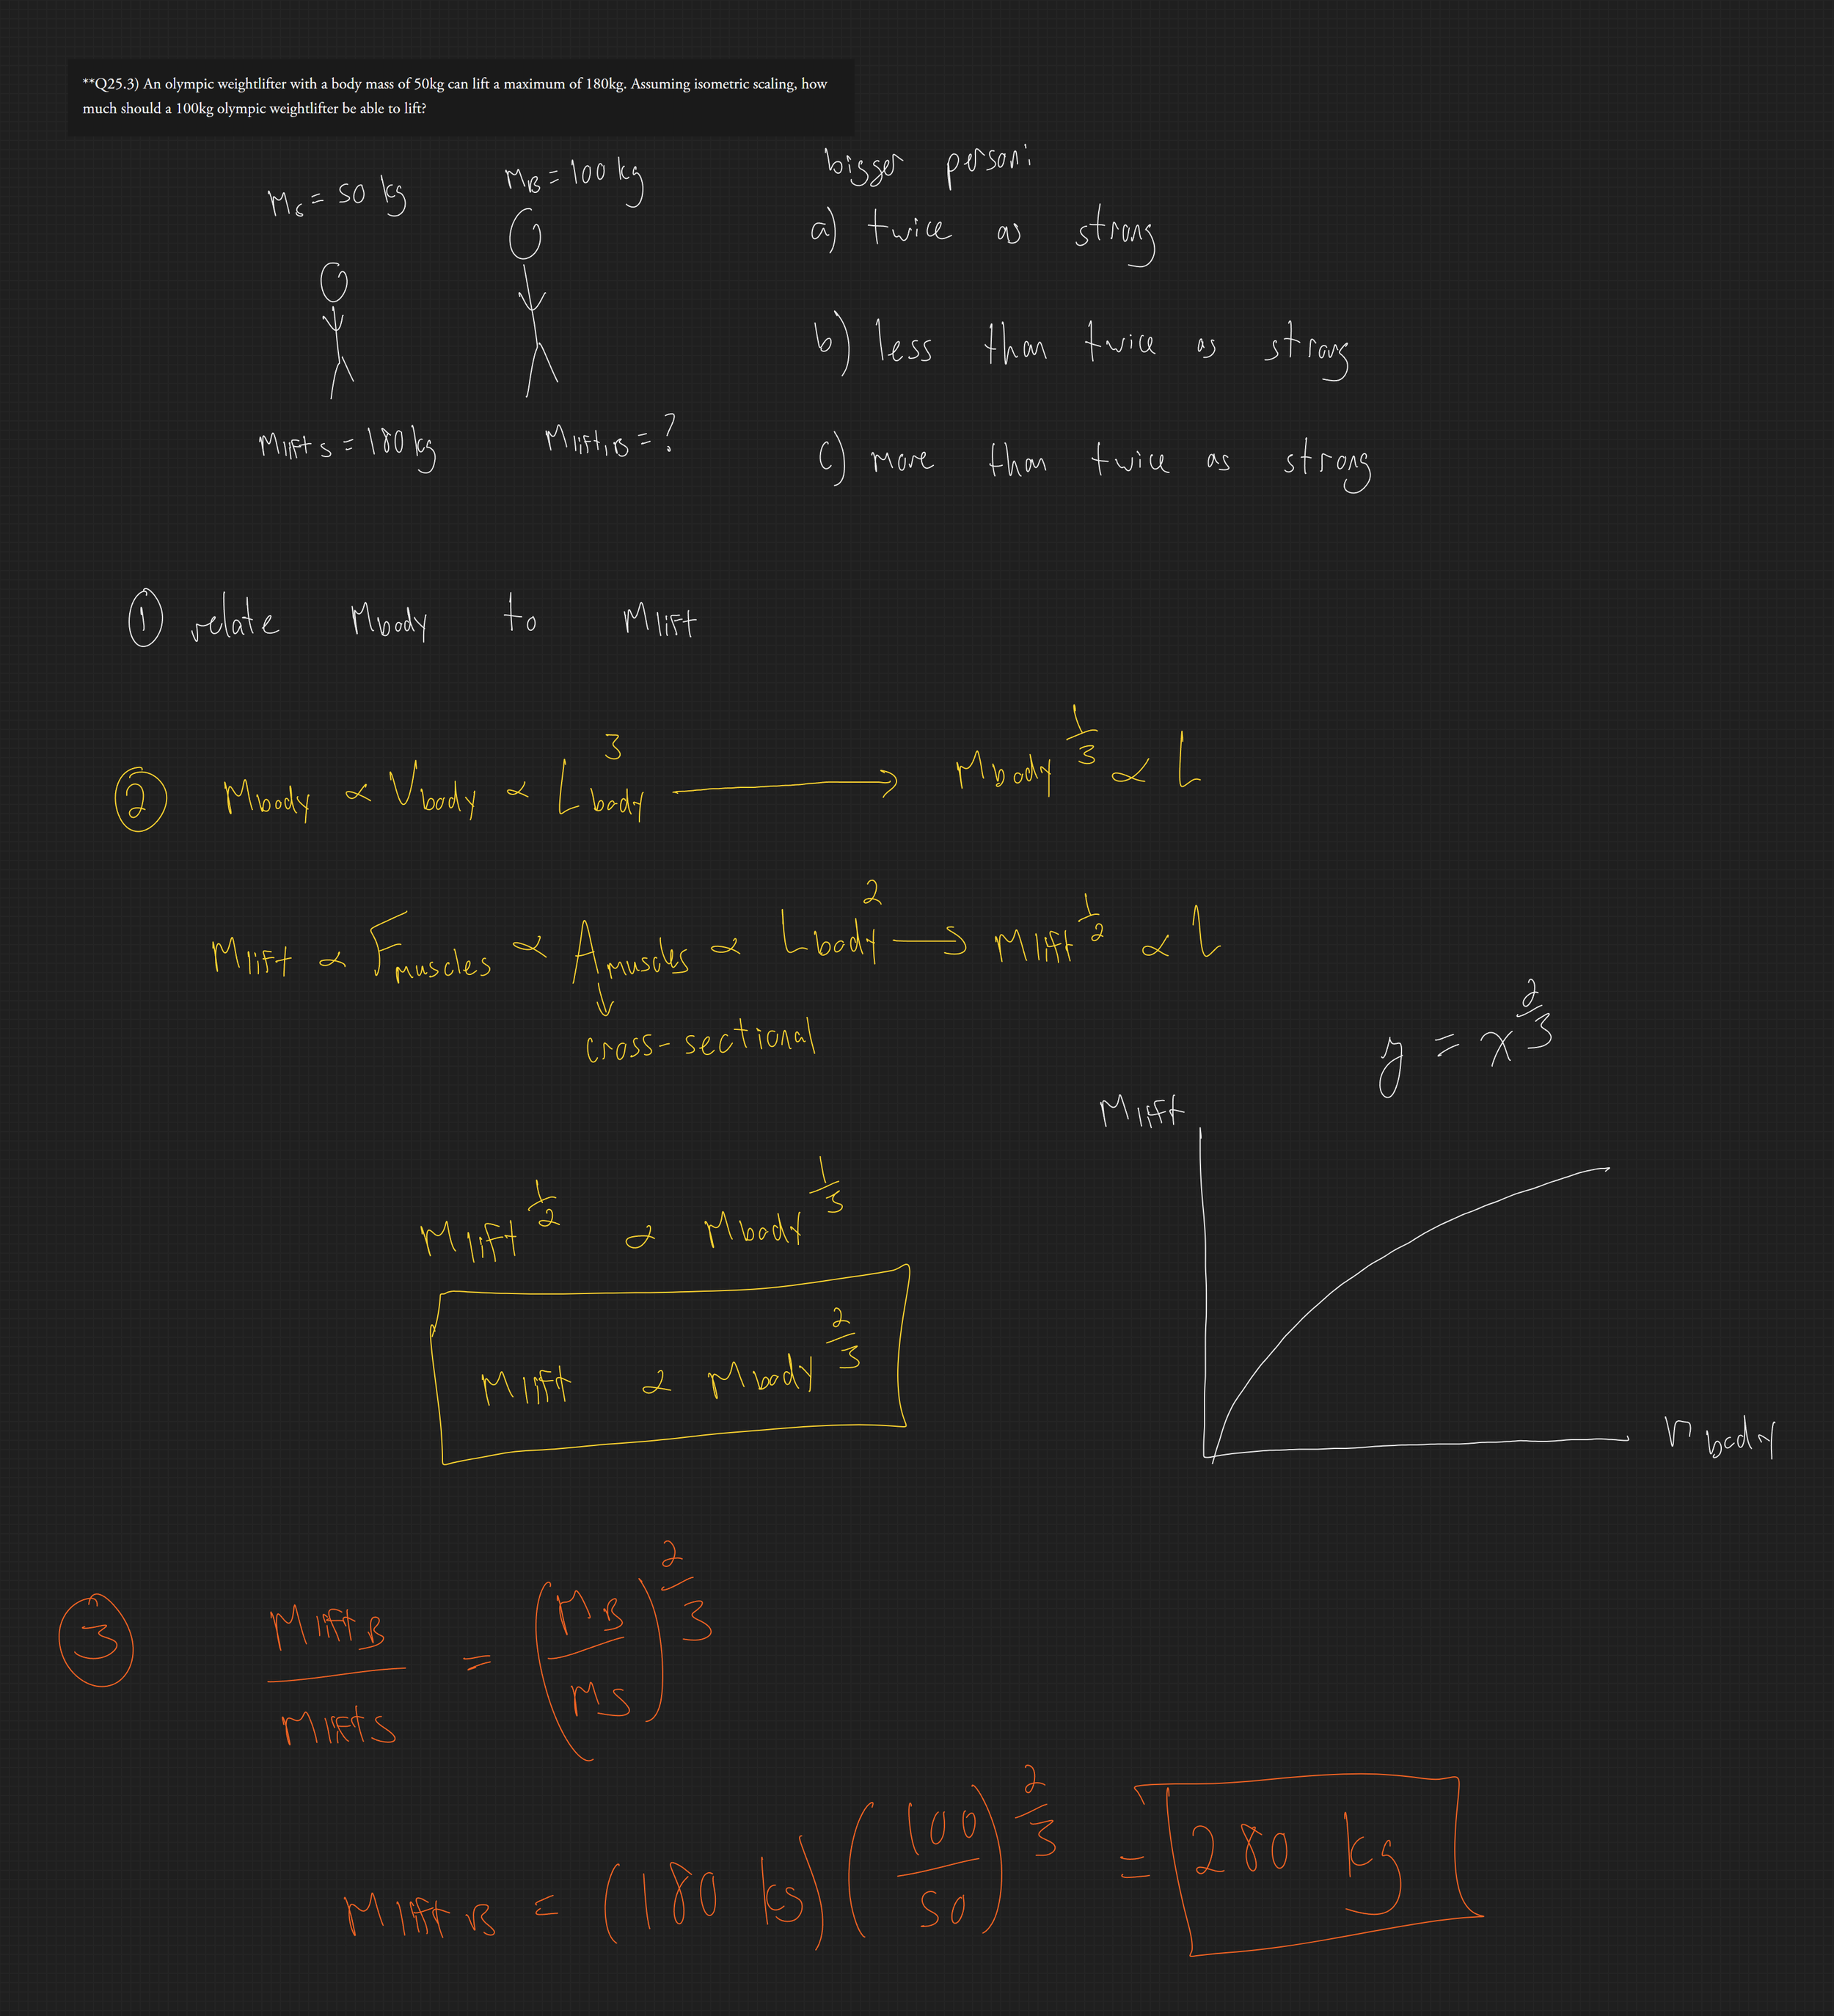 **Q25.3) An olympic weightlifter with a body mass of 50kg can lift a maximum of 180kg. Assuming isometric scaling, how
much should a 100kg olympic weightlifter be able to lift?
Ms = 50 kg
MB = 100 kg
bigger person:
a) twice as strong
b) less than twice as strong
c) more than twice as strong
Mlift S = 180 kg
Mlift,B = ?
① relate Mbody to Mlift
② Mbody ∝ Vbody ∝ Lbody^3 → Mbody^(1/3) ∝ L
Mlift ∝ Fmuscles ∝ Amuscles ∝ Lbody^2 → Mlift^(1/2) ∝ L
↓
cross-sectional
y = x^(2/3)
Mlift
Mlift^(1/2) ∝ Mbody^(1/3)
Mlift ∝ Mbody^(2/3)
Mbody
③ Mlift B / Mlift S = (MB / MS)^(2/3)
Mlift B = (180 kg) (100/50)^(2/3) = 280 kg